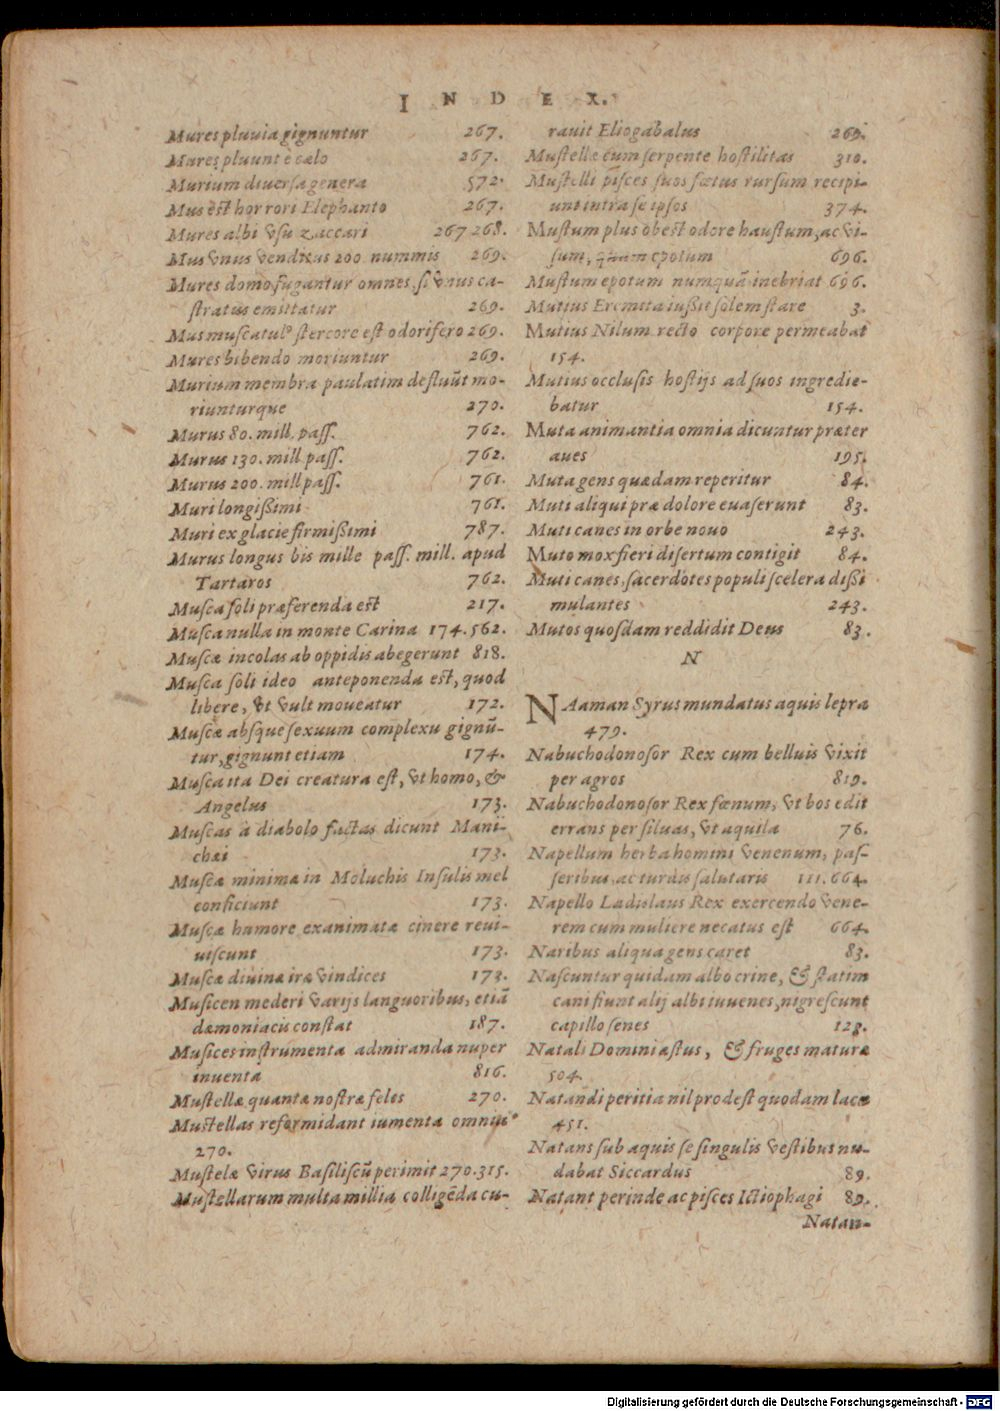 INDEX.
Mures pluuia gignuntur 267.
Mures pluunt è cælo 267.
Murium diuersa genera 572.
Mus est horrori Elephanto 267.
Mures albi vsu zaccari 267 268.
Mus vnus venditus 200 nummis 269.
Mures domo fugantur omnes, si vnus ca-
stratus emittatur 269.
Mus muscatulꝰ stercore est odorifero 269.
Mures bibendo moriuntur 269.
Murium membra paulatim defluũt mo-
riunturque 270.
Murus 80. mill. pass. 762.
Murus 130. mill pass. 762.
Murus 200. mill pass. 761.
Muri longißimi 761.
Muri ex glacie firmißimi 787.
Murus longus bis mille pass. mill. apud
Tartaros 762.
Musca soli præferenda est 217.
Musca nulla in monte Carina 174. 562.
Muscæ incolas ab oppidis abegerunt 818.
Musca soli ideo anteponenda est, quod
libere, vt vult moueatur 172.
Muscæ absque sexuum complexu gignũ-
tur, gignunt etiam 174.
Musca ita Dei creatura est, vt homo, &
Angelus 173.
Muscas à diabolo factas dicunt Mani-
chæi 173.
Muscæ minimæ in Moluchis Insulis mel
conficiunt 173.
Muscæ humore exanimatæ cinere reui-
uiscunt 173.
Muscæ diuinæ iræ vindices 173.
Musicen mederi varijs languoribus, etiã
dæmoniacis constat 187.
Musices instrumenta admiranda nuper
inuenta 816.
Mustellæ quantæ nostræ feles 270.
Mustellas reformidant iumenta omnia
270.
Mustelæ virus Basiliscũ perimit 270. 315.
Mustellarum multa millia colligẽda cu-
rauit Eliogabalus 269.
Mustellæ cum serpente hostilitas 310.
Mustelli pisces suos fœtus rursum recipi-
unt intra se ipsos 374.
Mustum plus obest odore haustum, ac vi-
sum, quam epotum 696.
Mustum epotum numquã inebriat 696.
Mutius Eremita iußit solem stare 3.
Mutius Nilum recto corpore permeabat
154.
Mutius occlusis hostijs ad suos ingredie-
batur 154.
Muta animantia omnia dicuntur præter
aues 195.
Muta gens quædam reperitur 84.
Muti aliqui præ dolore euaserunt 83.
Muti canes in orbe nouo 243.
Muto mox fieri disertum contigit 84.
Muti canes, sacerdotes populi scelera dißi
mulantes 243.
Mutos quosdam reddidit Deus 83.
N
NAaman Syrus mundatus aquis lepra
479.
Nabuchodonosor Rex cum belluis vixit
per agros 819.
Nabuchodonosor Rex fœnum, vt bos edit
errans per siluas, vt aquila 76.
Napellum herba homini venenum, pas-
seribus, ac turdis salutaris 111. 664.
Napello Ladislaus Rex exercendo vene-
rem cum muliere necatus est 664.
Naribus aliqua gens caret 83.
Nascuntur quidam albo crine, & statim
cani fiunt alij albi iuuenes, nigrescunt
capillo senes 128.
Natali Domini æstus, & fruges maturæ
504.
Natandi peritia nil prodest quodam lacu
451.
Natans sub aquis se singulis vestibus nu-
dabat Siccardus 89.
Natant perinde ac pisces Ictiophagi 89.
Natan-
Digitalisierung gefördert durch die Deutsche Forschungsgemeinschaft - DFG